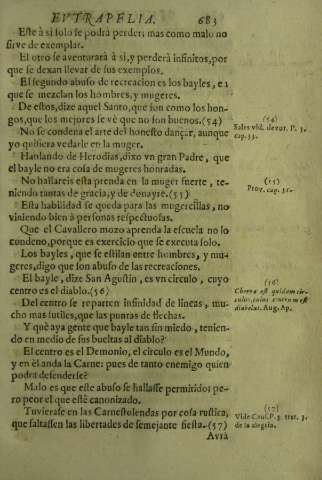 EVTRAPELIA. 683
Este à si solo se podrà perder; mas como malo no
sirve de exemplar.
El otro se aventurarà à si, y perderà infinitos, por
que se dexan llevar de sus exemplos.
El segundo abuso de recreacion es los bayles, en
que se mezclan los hombres, y mugeres.
De estos, dize aquel Santo, que son como los hon-
gos, que los mejores se vè que no son buenos. (54)
No se condena el arte del honesto dançar, aunque
yo quisiera vedarle en la muger.
Hablando de Herodias, dixo vn gran Padre, que
el bayle no era cosa de mugeres honradas.
No hallareis esta prenda en la muger fuerte, te-
niendo tantas de gracia, y de donayre. (55)
Esta habilidad se queda para las mugercillas, no
viniendo bien à personas respectuosas.
Que el Cavallero mozo aprenda la escuela no lo
condeno, porque es exercicio que se executa solo.
Los bayles, que se estilan entre hombres, y mu-
geres, digo que son abuso de las recreaciones.
El bayle, dize San Agustin, es vn circulo, cuyo
centro es el diablo. (56)
Del centro se reparten infinidad de lineas, mu-
cho mas sutiles, que las puntas de flechas.
Y què aya gente que bayle tan sin miedo, tenien-
do en medio de sus bueltas al diablo?
El centro es el Demonio, el circulo es el Mundo,
y en èl anda la Carne: pues de tanto enemigo quien
podrà defenderse?
Malo es que este abuso se hallasse permitido; pe-
ro peor el que estè canonizado.
Tuvierase en las Carnestolendas por cosa rustica,
que faltassen las libertades de semejante fiesta. (57)
Avrà
(54)
Sales vbi. de vut. P. 3.
cap. 33.
(55)
Prov. cap. 31.
(56)
Chorea est quidam cir-
culus, cuius centrum est
diabolus. Aug. Ap.
(57)
Vide Caus. P. 3. trat. 3.
de la alegria.